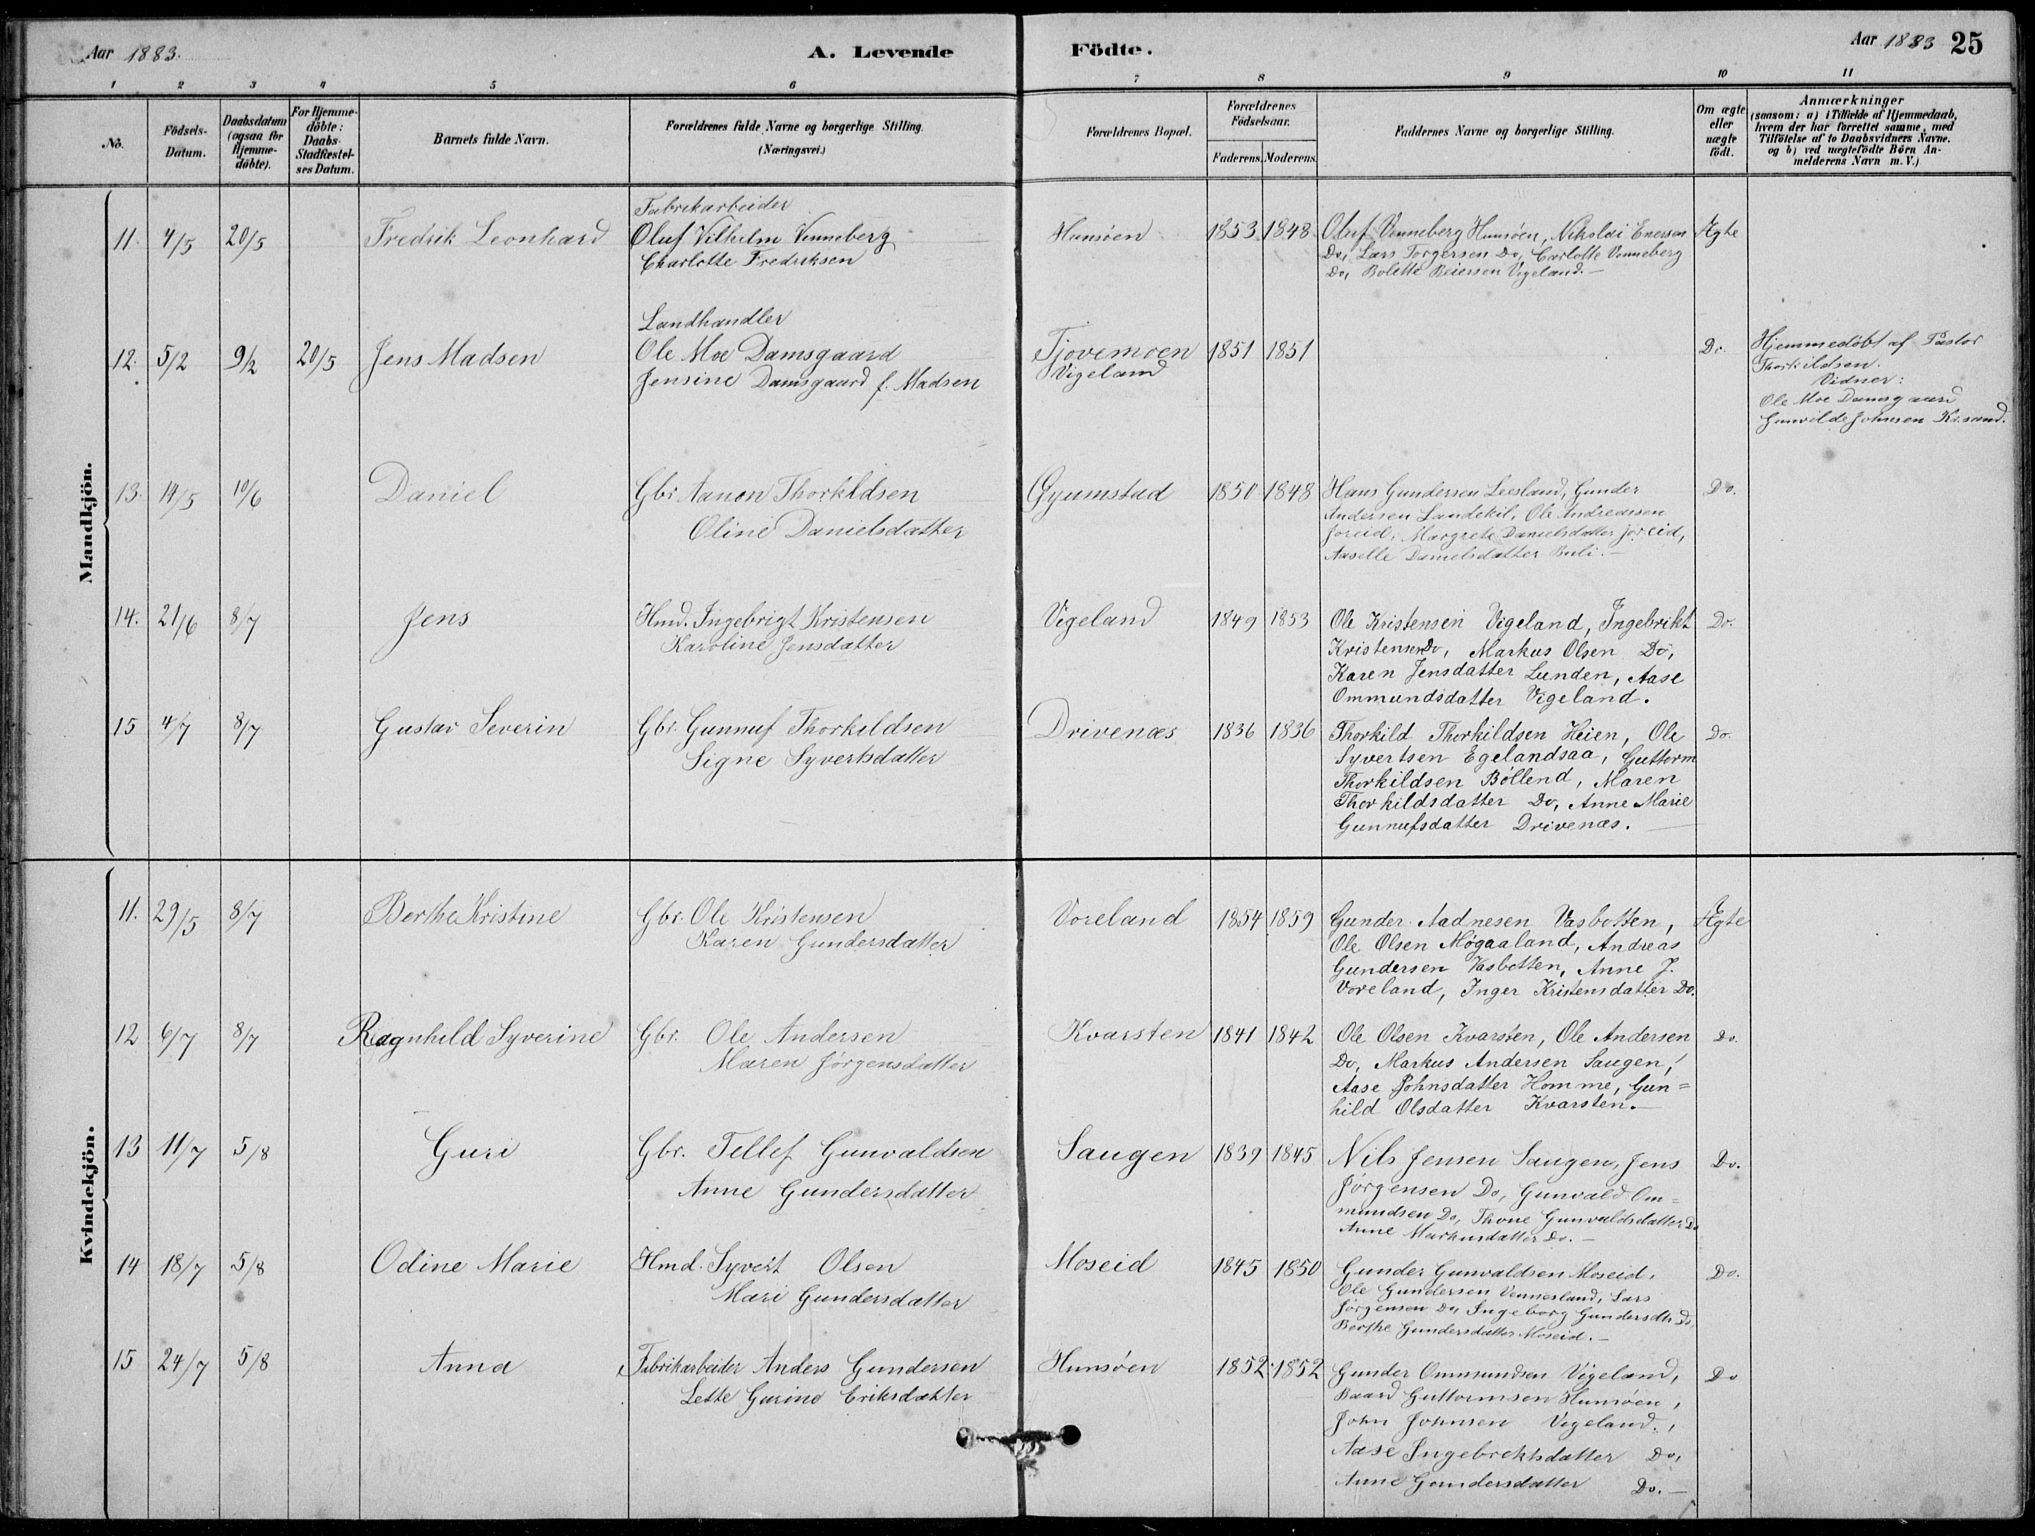 Aar 1883.
A. Levende
Födte.
Aar 1883 25
1 2 3 4 5 6 7 8 9 10 11
No.
Födsels-
Datum.
Daabsdatum
(ogsaa for
Hjemme-
döbte).
For Hjemme-
döbte:
Daabs-
Stadfæstel-
ses Datum.
Barnets fulde Navn.
Forældrenes fulde Navne og borgerlige Stilling.
(Næringsvei.)
Forældrenes Bopæl.
Forældrenes
Födselsaar.
Faderens. Moderens.
Faddernes Navne og borgerlige Stilling.
Om ægte
eller
uægte
födt.
Anmærkninger
(saasom: a) i Tilfælde af Hjemmedaab,
hvem der har forrettet samme, med
Tilföielse af to Daabsvidners Navne.
og b) ved uægtefödte Börn An-
melderens Navn m. V.)
Mandkjön.
Fabrikarbeider
11. 4/5 20/5 Fredrik Leonhard Oluf Vilhelm Venneberg
Charlotte Fredriksen
Hunsøen 1853 1848 Oluf Venneberg Hunsøen, Nikolai Enersen
Do, Lars Torgersen Do, Carlotte Venneberg
Do, Bolette Beiersen Vigeland. —
Ægte
Landhandler
12. 5/2 9/2 20/5 Jens Madsen Ole Moe Damsgaard
Jensine Damsgaard f. Madsen
Tjovemoen
Vigeland
1851 1851 Do.
Hjemmedøbt af Pastor
Thorkildsen.
Vidner:
Ole Moe Damsgaard
Gunvilde Johnsen Kr.sand.
13. 14/5 10/6 Daniel Gbr. Aanon Thorkildsen
Oline Danielsdatter
Gyumstad 1850 1848 Hans Gundersen Leesland, Gunder
Andersen Landekil, Ole Andreassen
Joreid, Margrete Danielsdatter Joreid,
Aaselle Danielsdatter Buli. —
Do.
14. 21/6 8/7 Jens Hmd. Ingebrigt Kristensen
Karoline Jensdatter
Vigeland 1849 1853 Ole Kristensen Vigeland, Ingebrikt
Kristensen Do, Markus Olsen Do,
Karen Jensdatter Lunden, Aase
Ommundsdatter Vigeland.
Do.
15 4/7 8/7 Gustav Severin Gbr. Gunnuf Thorkildsen
Signe Syvertsdatter
Drivenæs 1836 1836 Thorkild Thorkildsen Heien, Ole
Syvertsen Egelandsaa, Guttorm
Thorkildsen Bøllend, Maren
Thorkildsdatter Do, Anne Marie
Gunnufsdatter Drivenæs. —
Do.
Kvindekjön.
11. 29/5 8/7 Berthe Kristine Gbr. Ole Kristensen
Karen Gundersdatter
Voreland 1854 1859 Gunder Aadnesen Vasbotten,
Ole Olsen Møgaaland, Andreas
Gundersen Vasbotten, Anne J.
Voreland, Inger Kristensdatter Do.
Ægte
12 6/7 8/7 Ragnhild Syverine Gbr. Ole Andersen
Maren Jørgensdatter
Kvarsten 1841 1842 Ole Olsen Kvarsten, Ole Andersen
Do, Markus Andersen Saugen,
Aase Johnsdatter Homme, Gun=
hild Olsdatter Kvarsten. —
Do.
13 11/7 5/8 Guri Gbr. Tellef Gunvaldsen
Anne Gundersdatter
Saugen 1839 1845 Nils Jensen Saugen, Jens
Jørgensen Do, Gunvald Om=
mundsen Do, Thone Gunvaldsdatter Do
Anne Markusdatter Do. —
Do.
14 18/7 5/8 Odine Marie Hmd. Syvert Olsen
Mari Gundersdatter
Moseid 1845 1850 Gunder Gunvaldsen Moseid,
Ole Gundersen Vennesland, Lars
Jørgensen Do, Ingeborg Gundersdtr Do,
Berthe Gundersdatter Moseid. —
Do.
15 24/7 5/8 Anna Fabrikarbeider Anders Gundersen
Lette Gurine Eriksdatter
Hunsøen 1852 1852 Gunder Ommundsen Vigeland,
Baard Guttormsen Hunsøen,
John Johnsen Vigeland,
Aase Ingebrektsdatter Do,
Anne Gundersdatter Do. —
Do